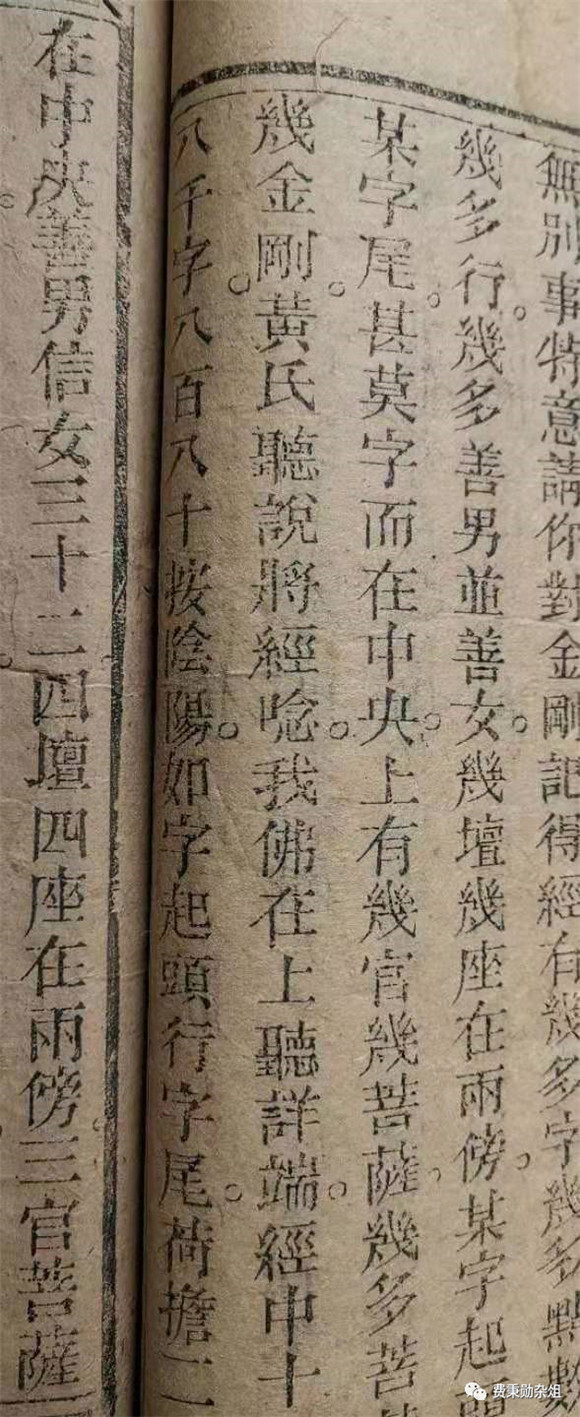 無別事特意請你對金剛記得經有幾多字幾多點數
幾多行。幾多善男並善女。幾壇幾座在兩傍。某字起頭
某字尾。甚莫字而在中央。上有幾官幾菩薩。幾多菩
幾金剛。黃氏聽說將經唸。我佛在上聽詳端。經中十
八千字八百八十按陰陽。如字起頭行字尾。荷擔二
在中央。善男信女三十二。四壇四座在兩傍。三官菩薩
费秉勋杂俎